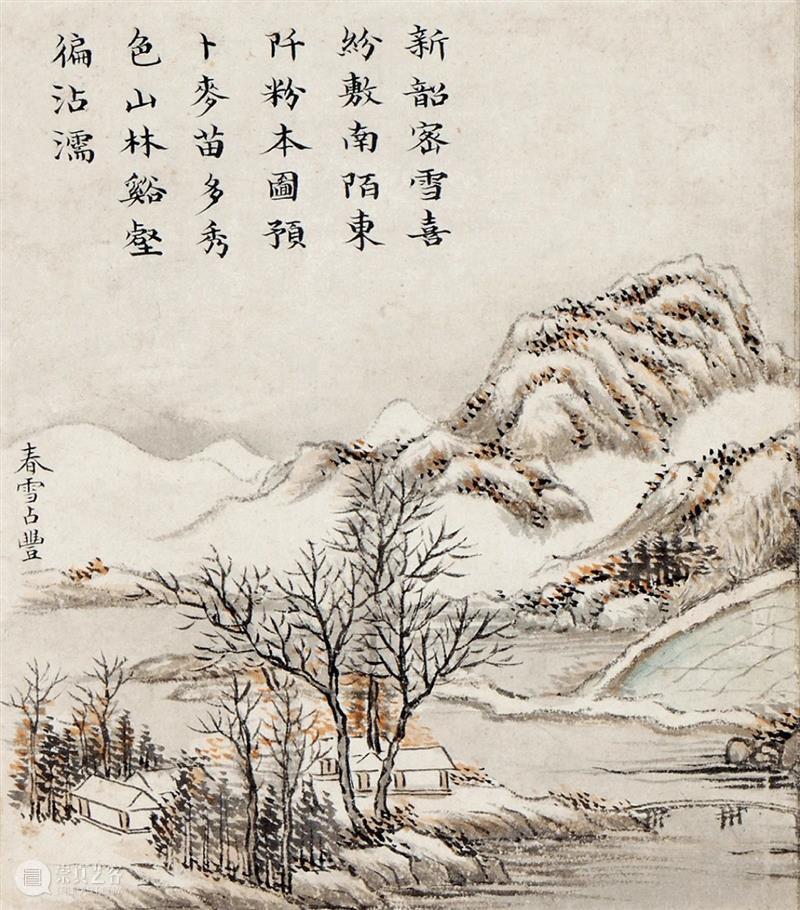 新韶密雪喜
紛敷南陌東
阡粉本圖預
卜麥苗多秀
色山林谿壑
徧沾濡
春雪占豐
崇真艺客